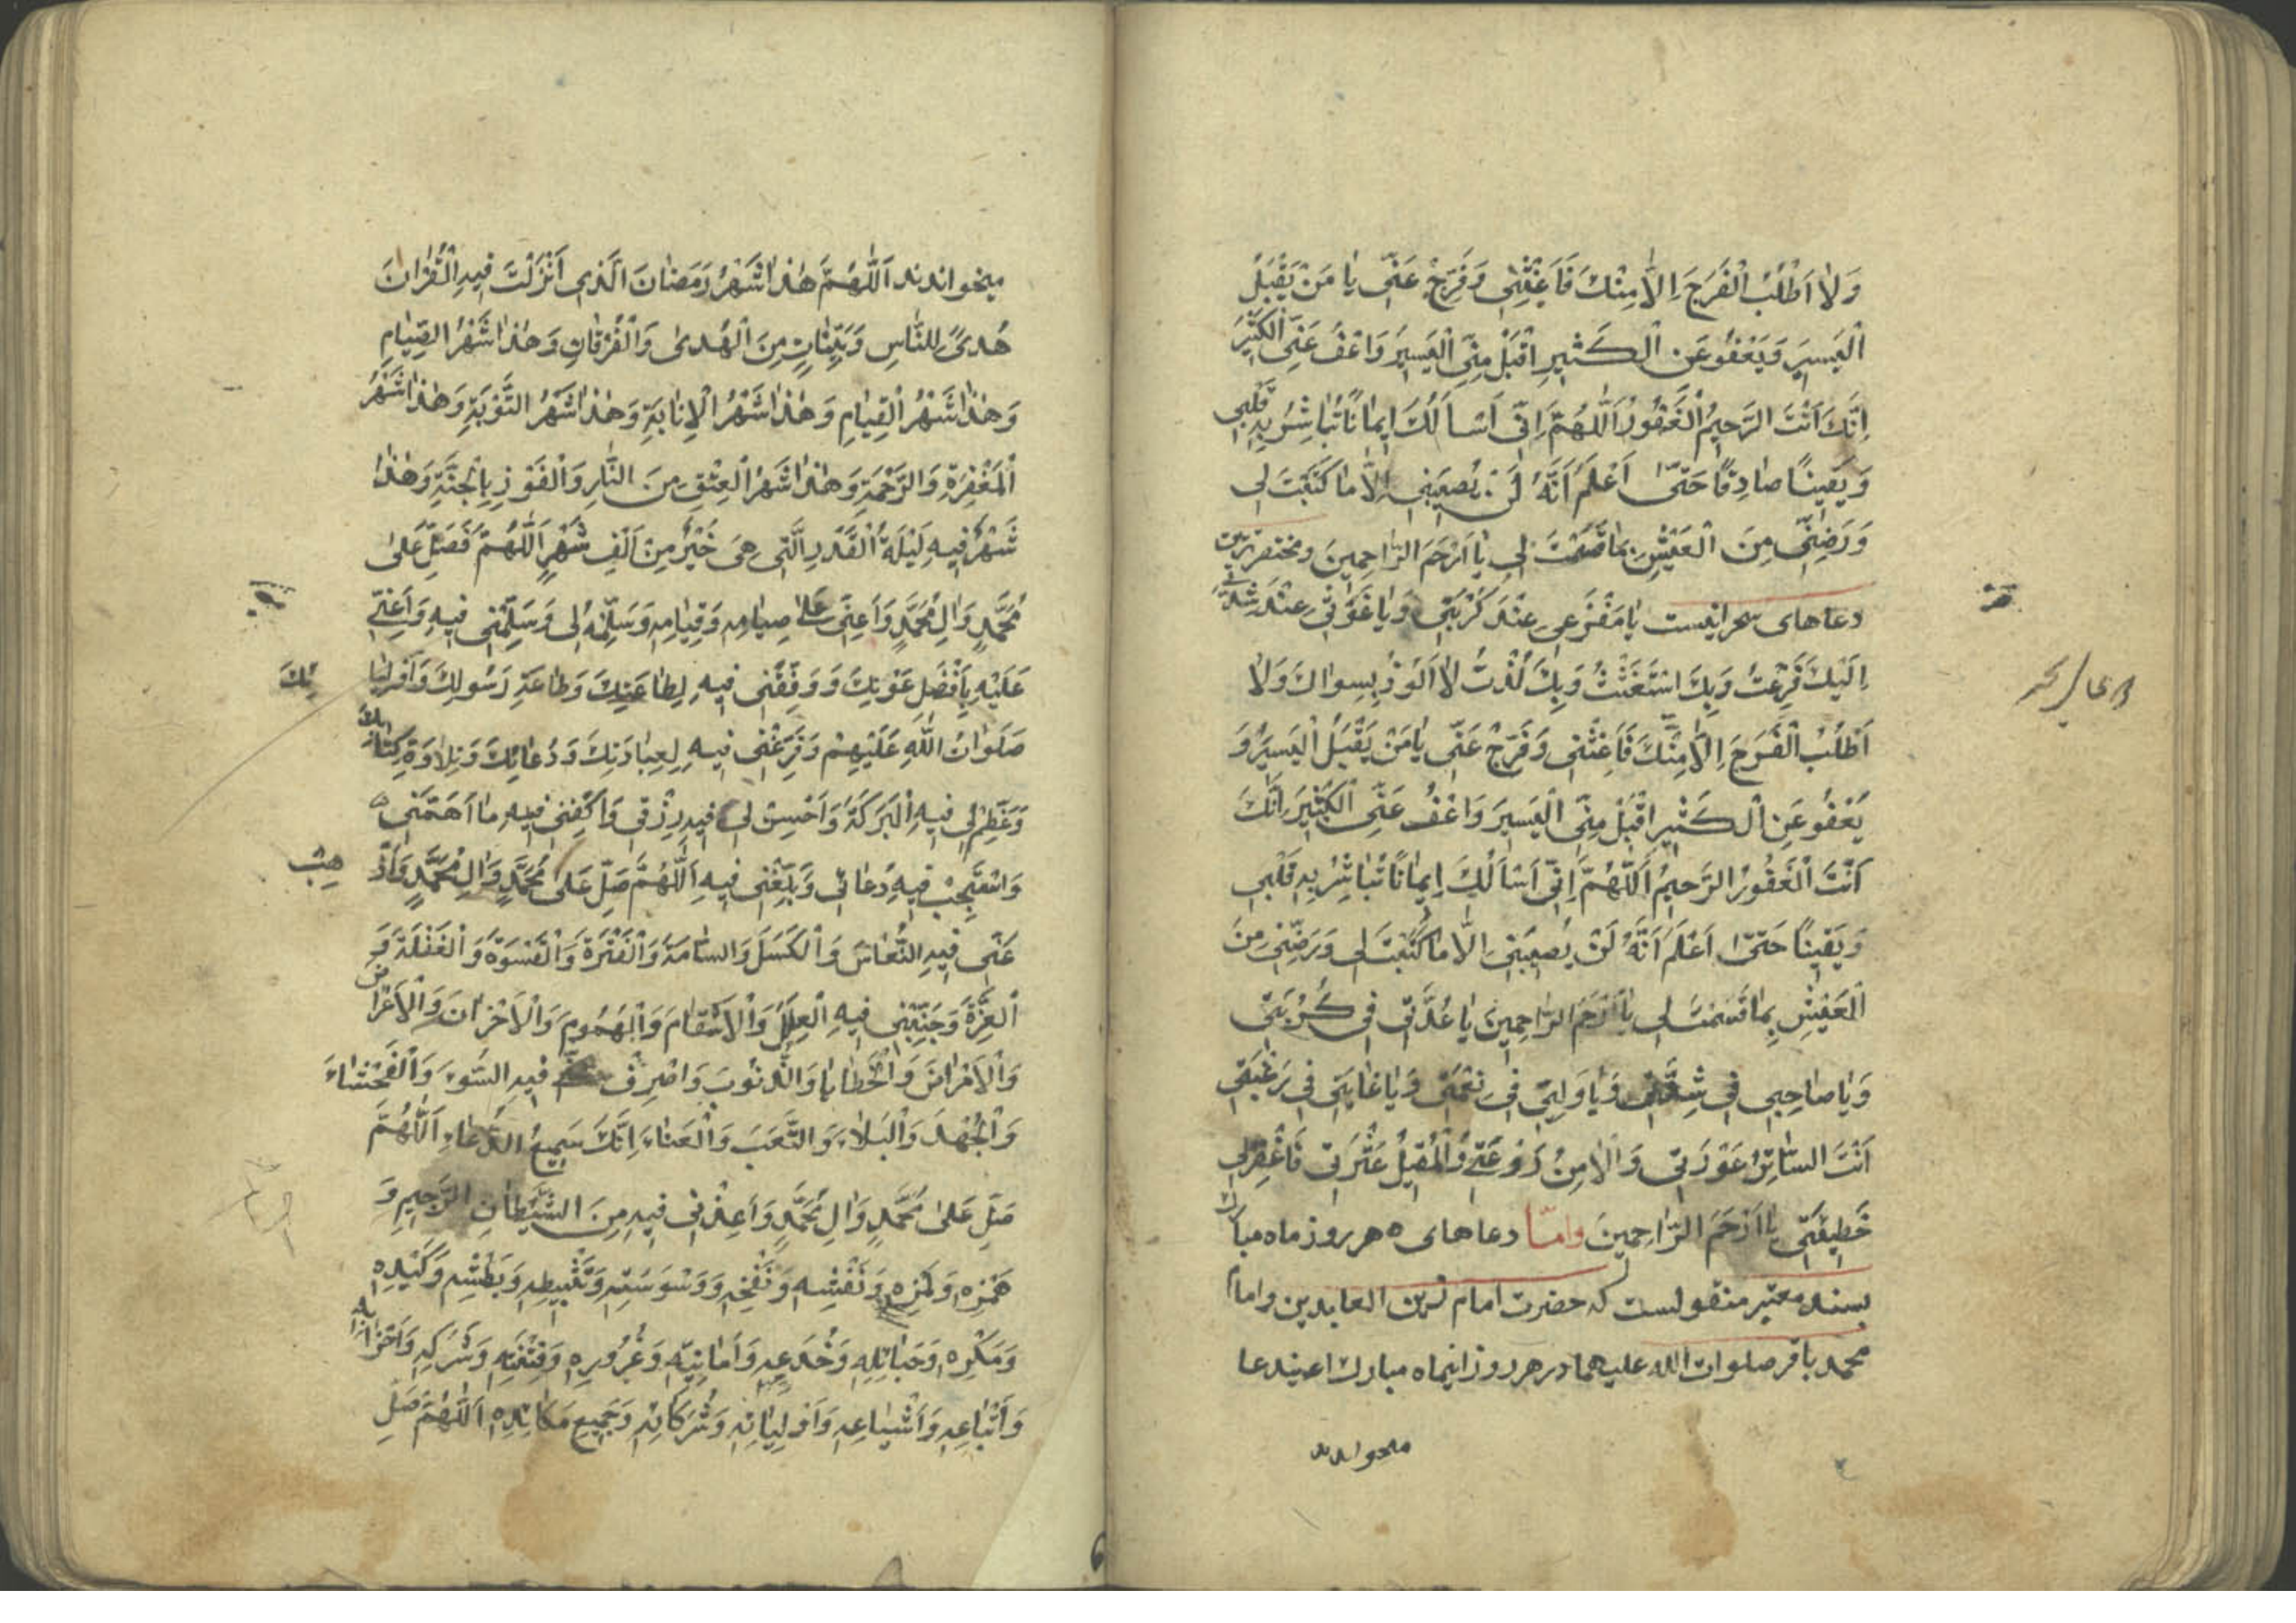 وَلاٰ اَطْلُبُ الْفَرَجَ اِلاّٰ مِنْكَ فَاَغِثْنِی وَفَرِّجْ عَنّی یٰا مَنْ یَقْبَلُ
الْیَسیرَ وَیَعْفُو عَنِ الْکَثیرِ اِقْبَلْ مِنِّی الْیَسیرَ وَاعْفُ عَنِّی الْکَثیرَ
اِنَّکَ اَنْتَ الرَّحیمُ الْغَفُورُ اَللّٰهُمَّ اِنّی اَسْأَلُکَ ایمٰانًا تُبٰاشِرُ بِهِ قَلْبی
وَیَقینًا صٰادِقًا حَتّیٰ اَعْلَمَ اَنَّهُ لَنْ یُصیبَنی اِلاّٰ مٰا کَتَبْتَ لی
وَرَضِّنی مِنَ الْعَیْشِ بِمٰا قَسَمْتَ لی یٰا اَرْحَمَ الرّٰاحِمینَ ومختصرترین
دعاهای سحر اینست یٰا مَفْزَعی عِنْدَ کُرْبَتی وَیٰا غَوْثی عِنْدَ شِدَّتی
اِلَیْکَ فَزِعْتُ وَبِکَ اسْتَغَثْتُ وَبِکَ لُذْتُ لاٰ اَلُوذُ بِسِوٰاکَ وَلاٰ
اَطْلُبُ الْفَرَجَ اِلاّٰ مِنْکَ فَاَغِثْنی وَفَرِّجْ عَنّی یٰا مَنْ یَقْبَلُ الْیَسیرَ وَ
یَعْفُو عَنِ الْکَثیرِ اِقْبَلْ مِنِّی الْیَسیرَ وَاعْفُ عَنِّی الْکَثیرَ اِنَّکَ
اَنْتَ الْغَفُورُ الرَّحیمُ اَللّٰهُمَّ اِنّی اَسْاَلُکَ ایمٰانًا تُبٰاشِرُ بِهِ قَلْبی
وَیَقینًا حَتّیٰ اَعْلَمَ اَنَّهُ لَنْ یُصیبَنی اِلاّٰ مٰا کَتَبْتَ لی وَرَضِّنی مِنَ
الْعَیْشِ بِمٰا قَسَمْتَ لی یٰا اَرْحَمَ الرّٰاحِمینَ یٰا عُدَّتی فی کُرْبَتی
وَیٰا صٰاحِبی فی شِدَّتی وَیٰا وَلِیّی فی نِعْمَتی وَیٰا غٰایَتی فی رَغْبَتی
اَنْتَ السّٰاتِرُ عَوْرَتی وَالْاٰمِنُ رَوْعَتی وَالْمُقیلُ عَثْرَتی فَاغْفِرْ لی
خَطیئَتی یٰا اَرْحَمَ الرّٰاحِمینَ وامّا دعاهای هر روز ماه مبارک
بسند معتبر منقولست که حضرت امام زین العابدین وامام
محمد باقر صلوات الله علیهما در هر روز اینماه مبارک اعیندعا
میخواندند
دعای سحر
میخواندند اَللّٰهُمَّ هٰذٰا شَهْرُ رَمَضٰانَ الَّذی اَنْزَلْتَ فیهِ الْقُرْاٰنَ
هُدیً لِلنّٰاسِ وَبَیِّنٰاتٍ مِنَ الْهُدیٰ وَالْفُرْقٰانِ وَهٰذٰا شَهْرُ الصِّیٰامِ
وَهٰذٰا شَهْرُ الْقِیٰامِ وَهٰذٰا شَهْرُ الْاِنٰابَةِ وَهٰذٰا شَهْرُ التَّوْبَةِ وَهٰذٰا شَهْرُ
الْمَغْفِرَةِ وَالرَّحْمَةِ وَهٰذٰا شَهْرُ الْعِتْقِ مِنَ النّٰارِ وَالْفَوْزِ بِالْجَنَّةِ وَهٰذٰا
شَهْرٌ فیهِ لَیْلَةُ الْقَدْرِ الَّتی هِیَ خَیْرٌ مِنْ اَلْفِ شَهْرٍ اَللّٰهُمَّ فَصَلِّ عَلیٰ
مُحَمَّدٍ وَاٰلِ مُحَمَّدٍ وَاَعِنّی عَلیٰ صِیٰامِهِ وَقِیٰامِهِ وَسَلِّمْهُ لی وَسَلِّمْنی فیهِ وَاَعِنّی
عَلَیْهِ بِاَفْضَلِ عَوْنِکَ وَوَفِّقْنی فیهِ لِطٰاعَتِکَ وَطٰاعَةِ رَسُولِکَ وَاَوْلِیٰا
ئِکَ
صَلَوٰاتُ اللّٰهِ عَلَیْهِمْ وَفَرِّغْنی فیهِ لِعِبٰادَتِکَ وَدُعٰائِکَ وَتِلاٰوَةِ کِتٰابِکَ
وَعَظِّمْ لی فیهِ الْبَرَکَةَ وَاَحْسِنْ لی فیهِ رِزْقی وَاکْفِنی فیهِ مٰا اَهَمَّنی
وَاسْتَجِبْ فیهِ دُعٰائی وَبَلِّغْنی فیهِ اَللّٰهُمَّ صَلِّ عَلیٰ مُحَمَّدٍ وَاٰلِ مُحَمَّدٍ وَاَذْ
هِبْ
عَنّی فیهِ النُّعٰاسَ وَالْکَسَلَ وَالسَّاٰمَةَ وَالْفَتْرَةَ وَالْقَسْوَةَ وَالْغَفْلَةَ وَ
الْغِرَّةَ وَجَنِّبْنی فیهِ الْعِلَلَ وَالْاَسْقٰامَ وَالْهُمُومَ وَالْاَحْزٰانَ وَالْاَعْرٰاضَ
وَالْاَمْرٰاضَ وَالْخَطٰایٰا وَالذُّنُوبَ وَاصْرِفْ فیهِ السُّوءَ وَالْفَحْشٰاءَ
وَالْجُهْدَ وَالْبَلاٰءَ وَالتَّعَبَ وَالْعَنٰاءَ اِنَّکَ سَمیعُ الدُّعٰاءِ اَللّٰهُمَّ
صَلِّ عَلیٰ مُحَمَّدٍ وَاٰلِ مُحَمَّدٍ وَاَعِذْنی فیهِ مِنَ الشَّیْطٰانِ الرَّجیمِ وَ
هَمْزِهِ وَلَمْزِهِ وَنَفْثِهِ وَنَفْخِهِ وَوَسْوَسَتِهِ وَتَثْبیطِهِ وَبَطْشِهِ وَکَیْدِهِ
وَمَکْرِهِ وَحَبٰائِلِهِ وَخُدَعِهِ وَاَمٰانِیِّهِ وَغُرُورِهِ وَفِتْنَتِهِ وَشَرَکِهِ وَاَحْزٰابِهِ
وَاَتْبٰاعِهِ وَاَشْیٰاعِهِ وَاَوْلِیٰائِهِ وَشُرَکٰائِهِ وَجَمیعِ مَکٰائِدِهِ اَللّٰهُمَّ صَلِّ